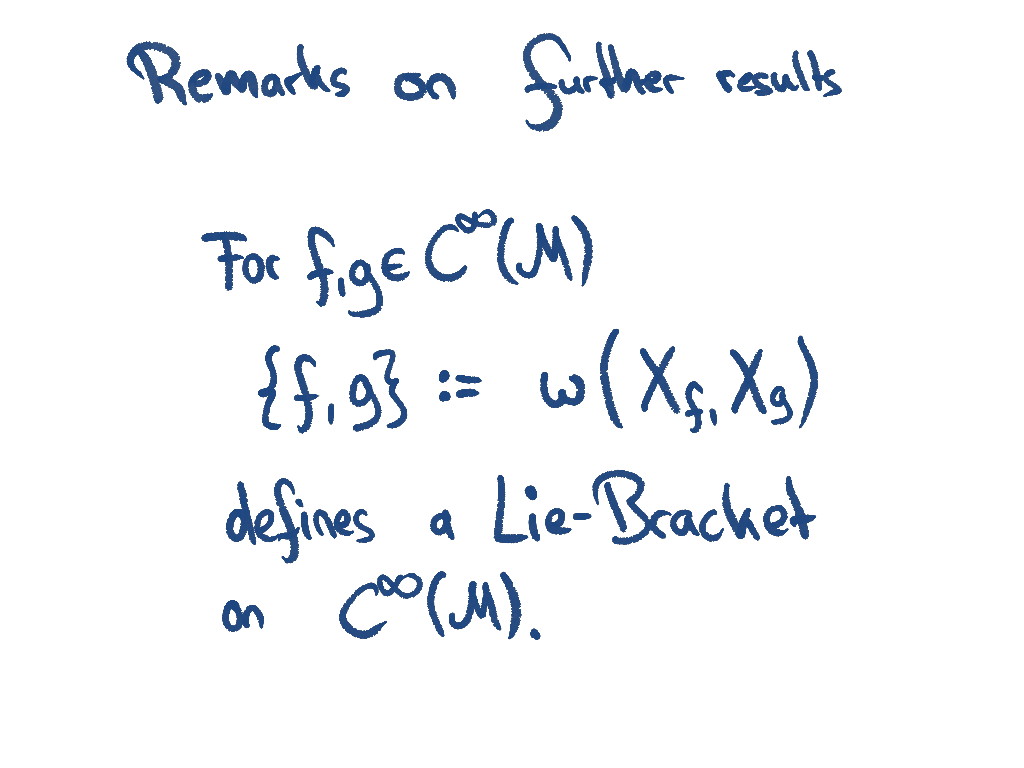 Remarks on further results
For f,g ∈ C^∞(M)
{f,g} := ω(X_f, X_g)
defines a Lie-Bracket
on C^∞(M).